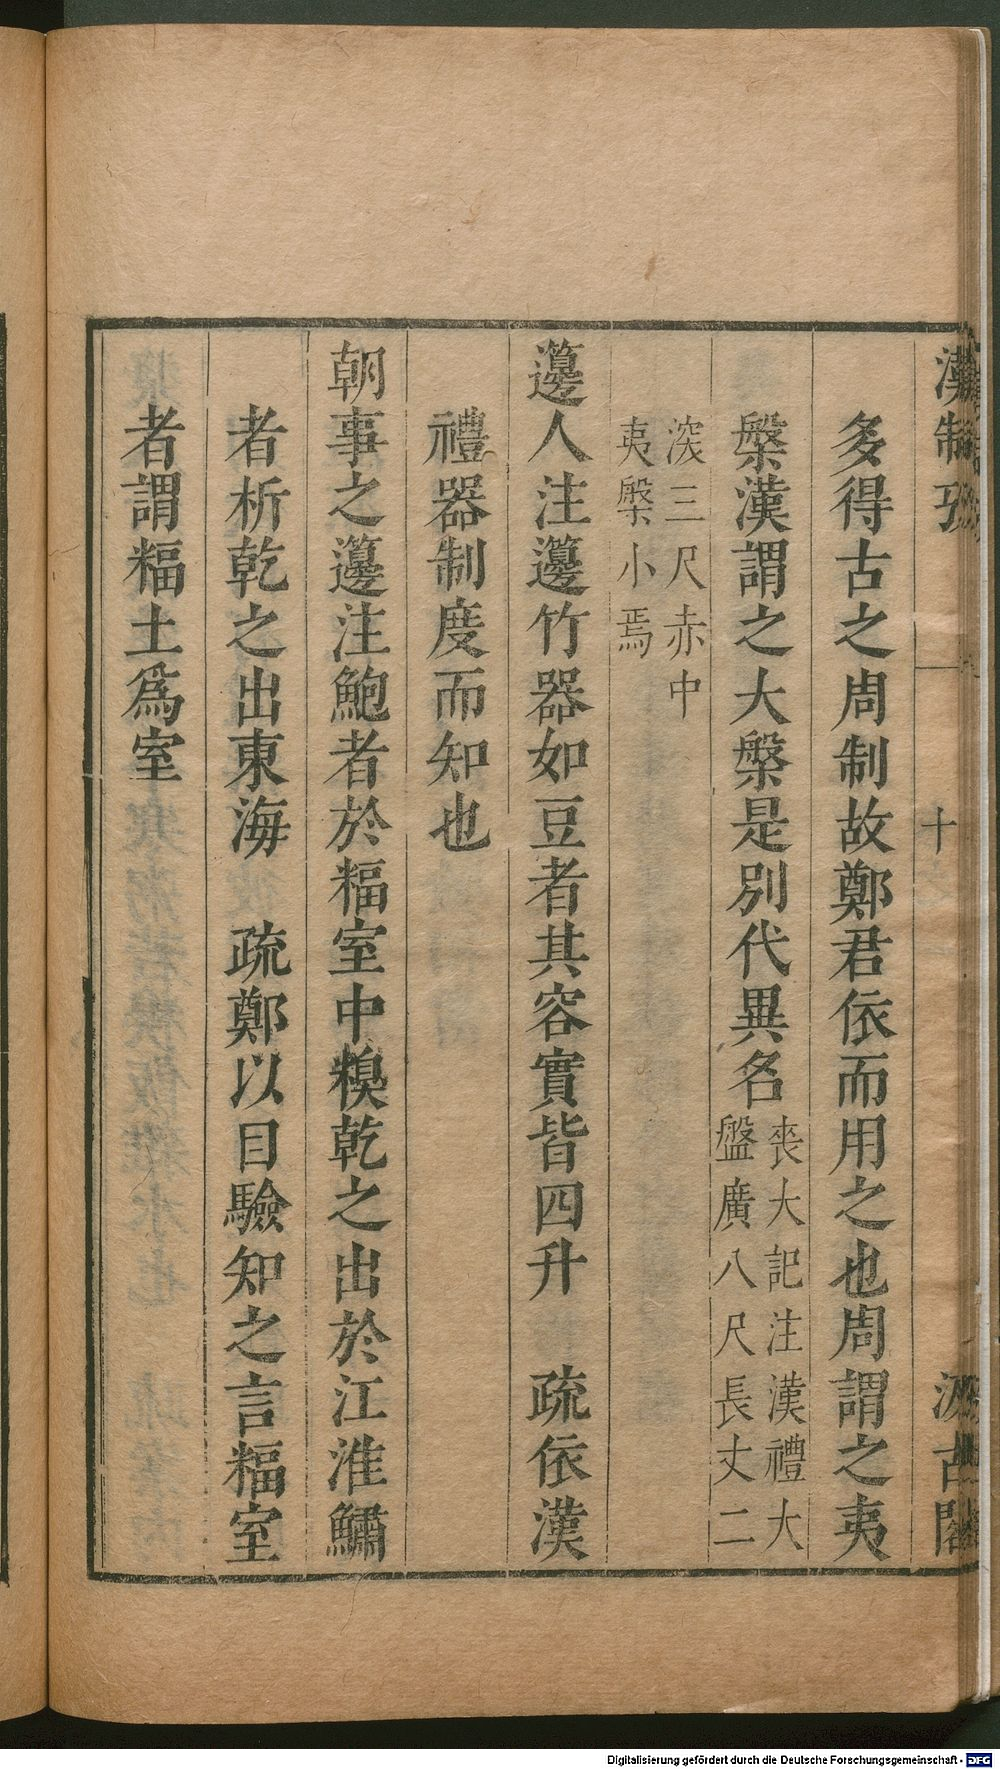 漢制攷
十
汲古閣
多得古之周制故鄭君依而用之也周謂之夷
槃漢謂之大槃是別代異名喪大記注漢禮大
盤廣八尺長丈二
深三尺赤中
夷槃小焉
籩人注籩竹器如豆者其容實皆四升 疏依漢
禮器制度而知也
朝事之籩注鮑者於䊧室中糗乾之出於江淮鱐
者析乾之出東海 疏鄭以目驗知之言䊧室
者謂䊧土爲室
Digitalisierung gefördert durch die Deutsche Forschungsgemeinschaft - DFG